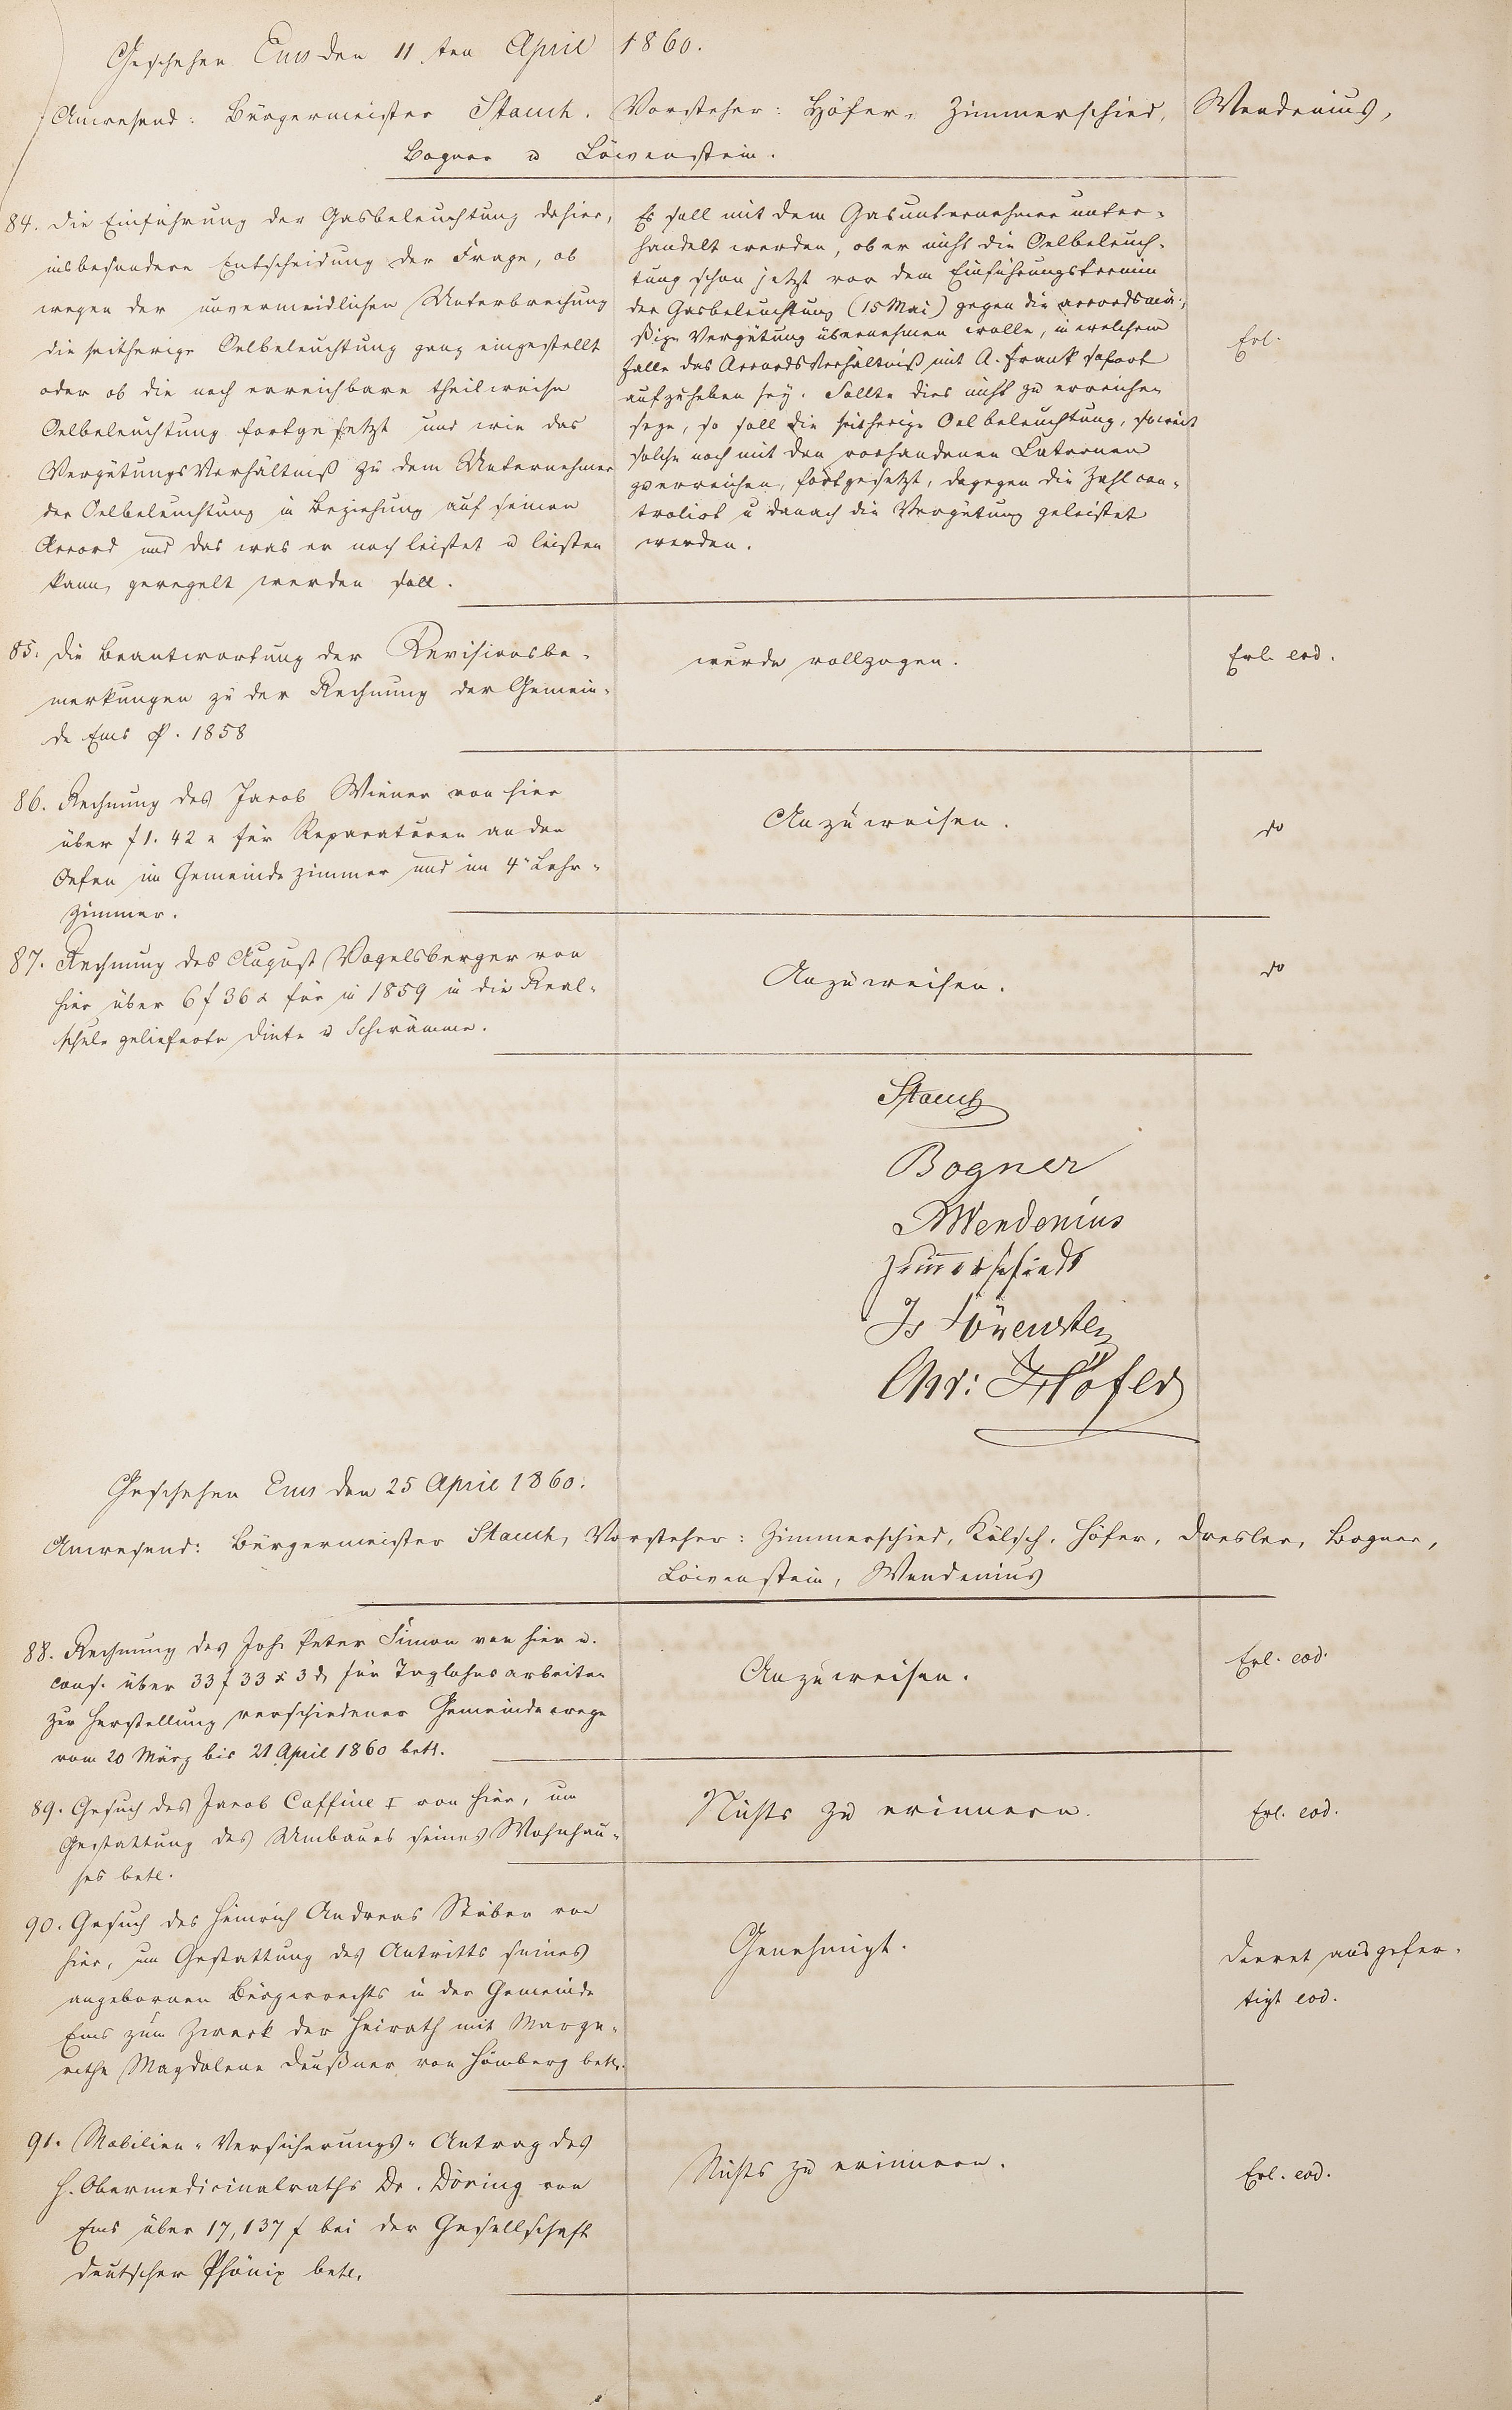 Geschehen Ems den 11ten April 1860.
Anwesend: Bürgermeister Stauch. Vorsteher: Höfer, Zimmerschied, Wendenius,
Bogner u Löwenstein.
84. Die Einführung der Gasbeleuchtung dahier,
insbesondere Entscheidung der Frage, ob
wegen der unvermeidlichen Unterbrechung
die seitherige Oelbeleuchtung ganz eingestellt
oder ob die noch erreichbare theilweise
Oelbeleuchtung fortgesetzt und wie das
Vergütungsverhältniß zu dem Unternehmer
der Oelbeleuchtung in Beziehung auf seinen
Accord und das was er noch leistet u leisten
kann, geregelt werden soll.
Es soll mit dem Gasunternehmer unter-
handelt werden, ob er nicht die Oelbeleuch-
tung schon jetzt vor dem Einführungstermin
der Gasbeleuchtung (15 Mai) gegen die accordsmä-
ßige Vergütung übernehmen wolle, in welchem
Falle das Accordsverhältniß mit A. Frank sofort
aufzuheben sey. Sollte dies nicht zu erreichen
seye, so soll die seitherige Oelbeleuchtung, soweit
solche noch mit den vorhandenen Laternen
zu erreichen, fortgesetzt, dagegen die Zahl con-
trolirt u danach die Vergütung geleistet
werden.
Erl.
85. Die Beantwortung der Revisionsbe-
merkungen zu der Rechnung der Gemein-
de Ems p. 1858
wurde vollzogen.
Erl. eod.
86. Rechnung des Jacob Wiener von hier
über f 1. 42 x für Reparaturen an den
Oefen im Gemeindezimmer und im 4n Lehr-
zimmer.
Anzuweisen.
do
87. Rechnung des August Vogelsberger von
hier über 6 f 36 x für in 1859 in die Real-
schule gelieferte Dinte u Schwämme.
Anzuweisen.
do
Stauch
Bogner
Wendenius
Zimmerschied
Is Löwenstein
Chr: Höfer
Geschehen Ems den 25 April 1860.
Anwesend: Bürgermeister Stauch, Vorsteher: Zimmerschied, Kölsch, Höfer, Dresler, Bogner,
Löwenstein, Wendenius
88. Rechnung des Joh. Peter Simon von hier u.
cons. über 33 f 33 x 3 d für Taglohnsarbeiten
zur Herstellung verschiedener Gemeindewege
vom 20 März bis 21 April 1860 betr.
Anzuweisen.
Erl. eod.
89. Gesuch des Jacob Caffine I von hier, um
Gestattung des Umbaues seines Wohnhau-
ses betr.
Nichts zu erinnern.
Erl. eod.
90. Gesuch des Heinrich Andreas Stüber von
hier, um Gestattung des Antritts seines
angebornen Bürgerrechts in der Gemeinde
Ems zum Zweck der Heirath mit Marga-
rethe Magdalene Deußner von Hömberg betr.
Genehmigt.
Decret ausgefer-
tigt eod.
91. Mobilien-Versicherungs-Antrag des
H. Obermedicinalraths Dr. Döring von
Ems über 17,137 f bei der Gesellschaft
deutscher Phönix betr.
Nichts zu erinnern.
Erl. eod.